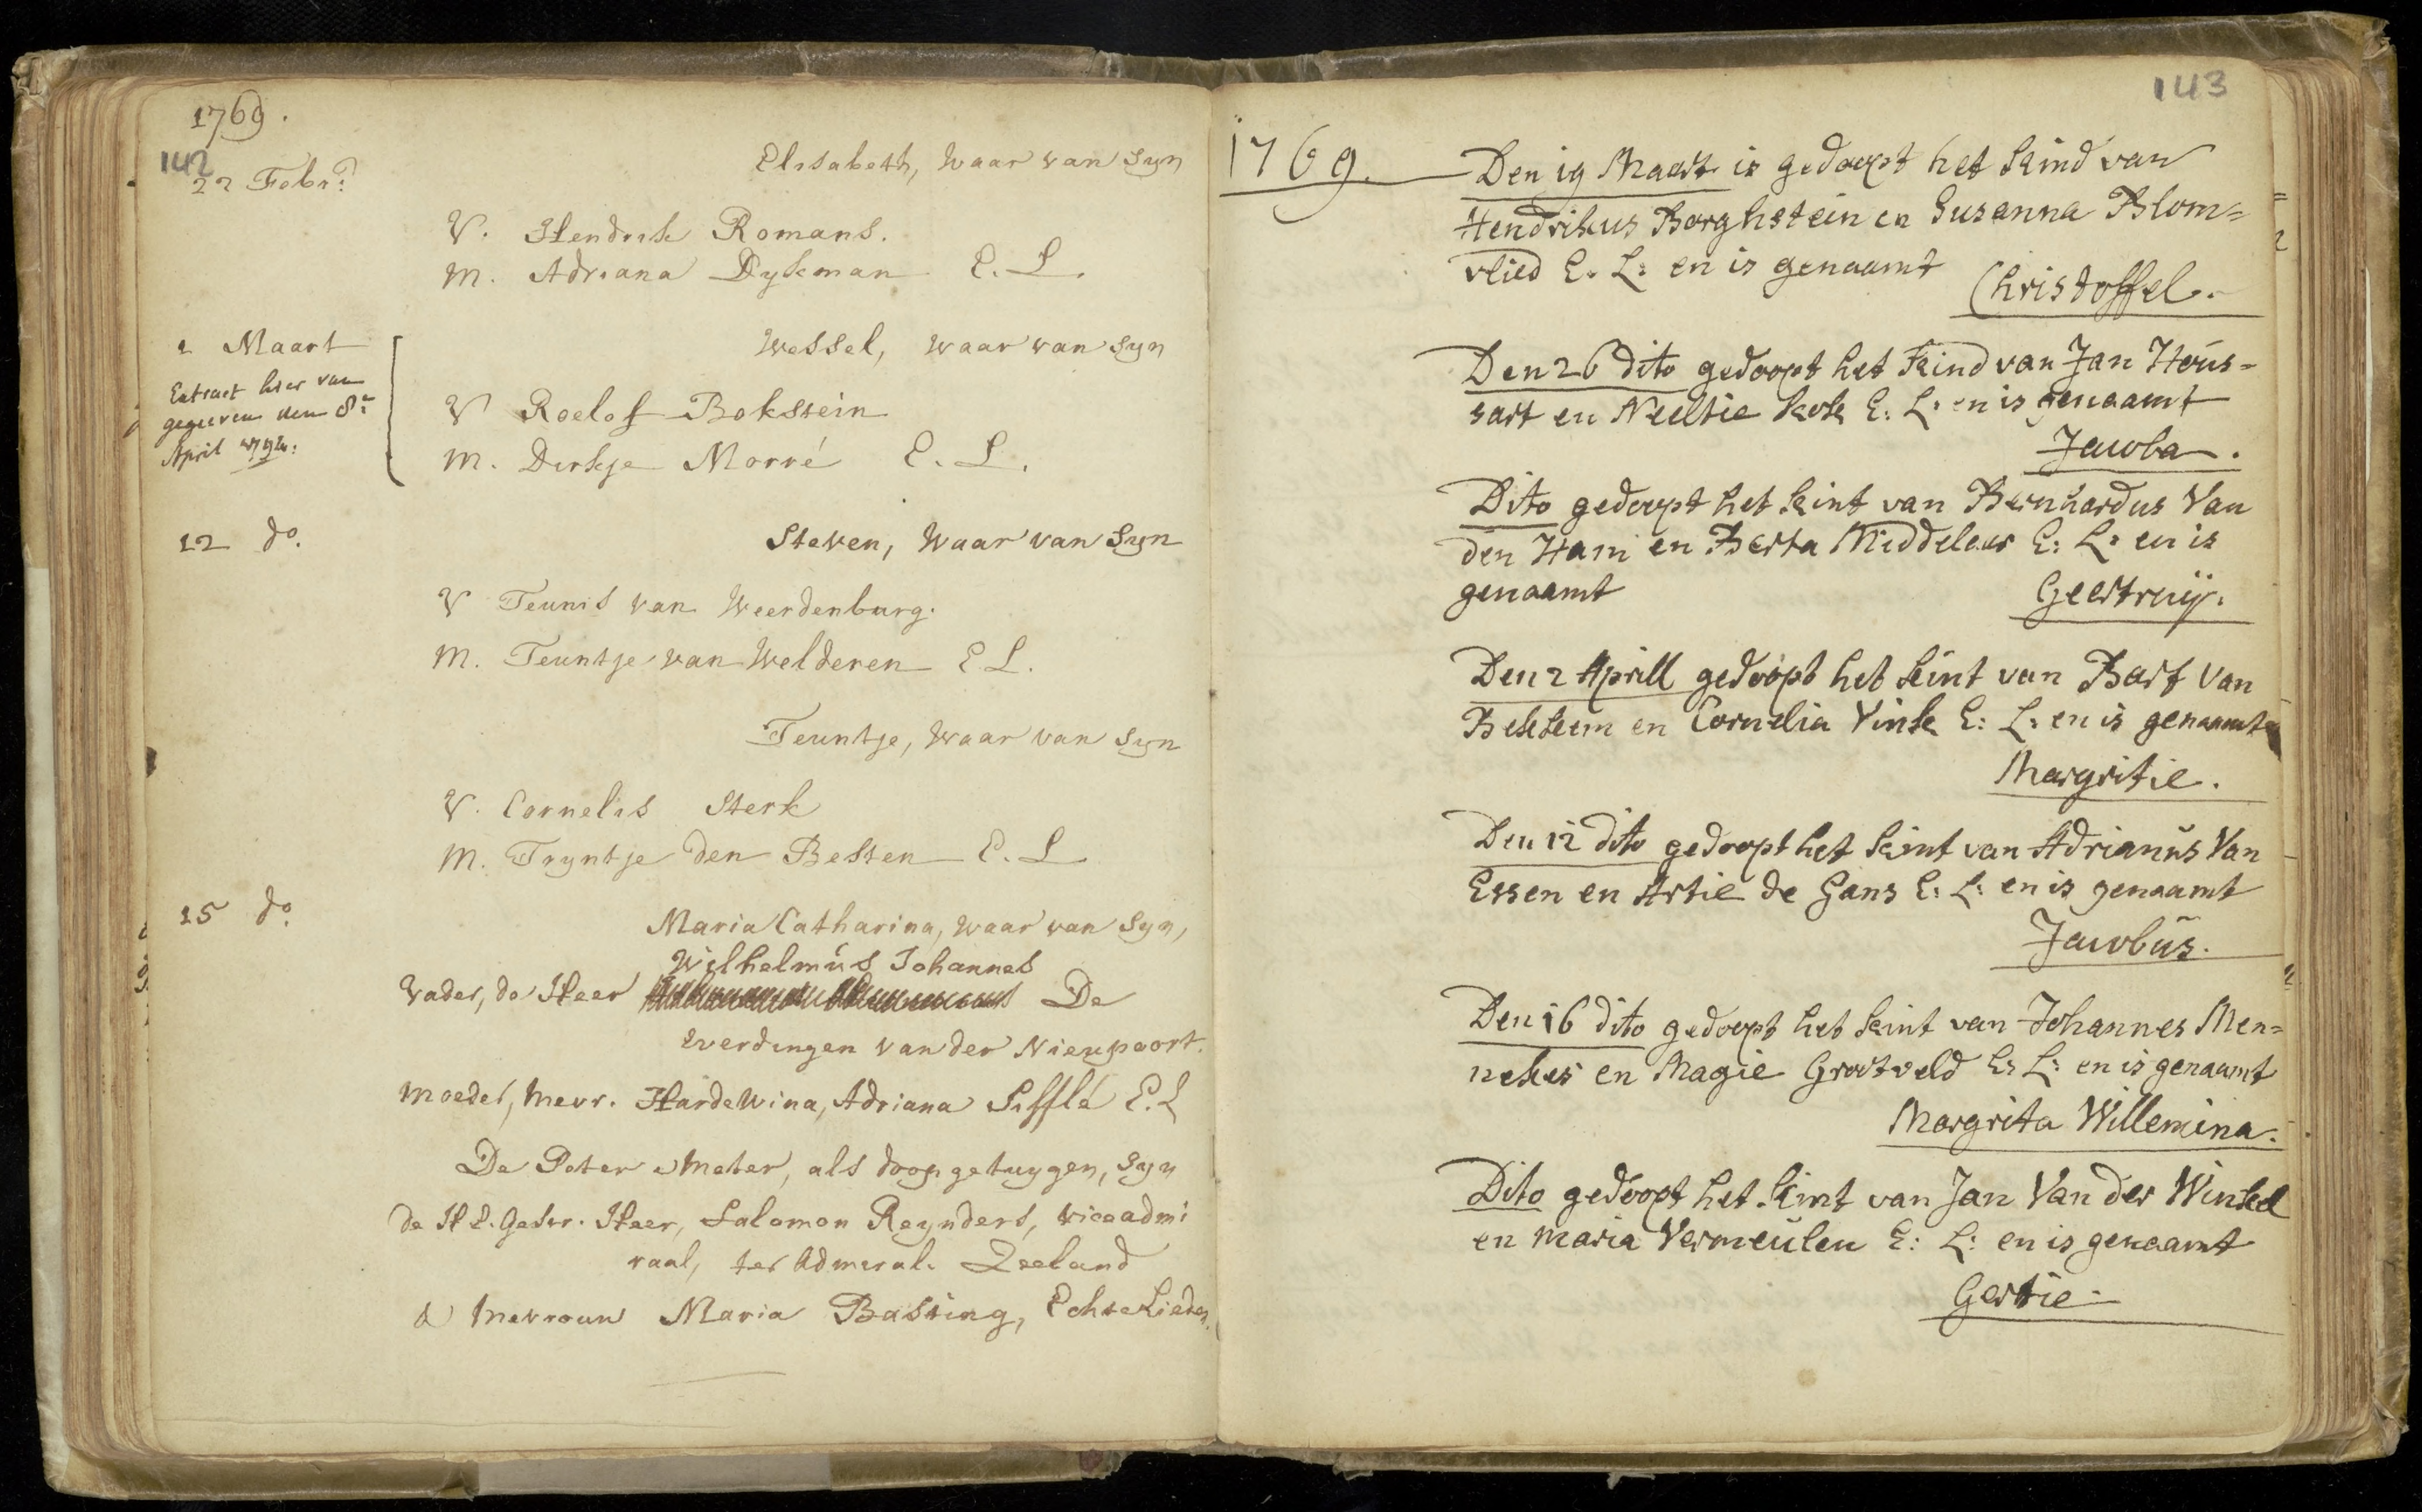 1769.
142
22 Febr:
Elisabeth, waar van syn
V. Hendrik Romans.
M. Adriana Dykeman E. L.
1 Maart
Wessel, waar van syn
Extract hier van
gegeven den 8:
April
V Roelof Bokstein
M. Dirkje Morré E. L.
12 do.
Steven, waar van syn
V Teunis van Weerdenburg.
M. Teuntje van Welderen E L.
Teuntje, waar van syn
V. Cornelis Sterk
M. Tryntje den Besten E. L
15 do.
Maria Catharina, waar van syn,
Wilhelmus Johannes
Vader, de Heer De
Everdingen van der Nieupoort.
Moeder, Mevr. Hardewina, Adriana Sifflé E. L
De Peter & Meter, als doopgetuygen, syn
de H E. Gestr. Heer, Salomon Reynders, viceadmi
raal, ter Admiral. Zeeland
& Mevrouw Maria Basting, Echte Lieden.
143
1769. Den 19 Maart is gedoopt het kind van
Hendrikus Borghstein en Susanna Blom=
vlied E. L: en is genaamt
Christoffel.
Den 26 dito gedoopt het kind van Jan Hous=
sart en Neeltie Kok E: L: en is genaamt
Jacoba.
Dito gedoopt het kint van Bernhardus Van
den Ham en Berta Middelaer E: L: en is
genaamt Geertruij.
Den 2 Aprill gedoopt het kint van Bart Van
Bekkum en Cornelia Vink E: L: en is genaamt
Margritie.
Den 12 dito gedoopt het kint van Adrianus Van
Essen en Artie de Gans E: L: en is genaamt
Jacobus.
Den 16 dito gedoopt het kint van Johannes Men=
nekes en Magie Grootveld E: L: en is genaamt
Margrita Willemina.
Dito gedoopt het kint van Jan Van der Winkel
en Maria Vermeulen E: L: en is genaamt
Gertie.